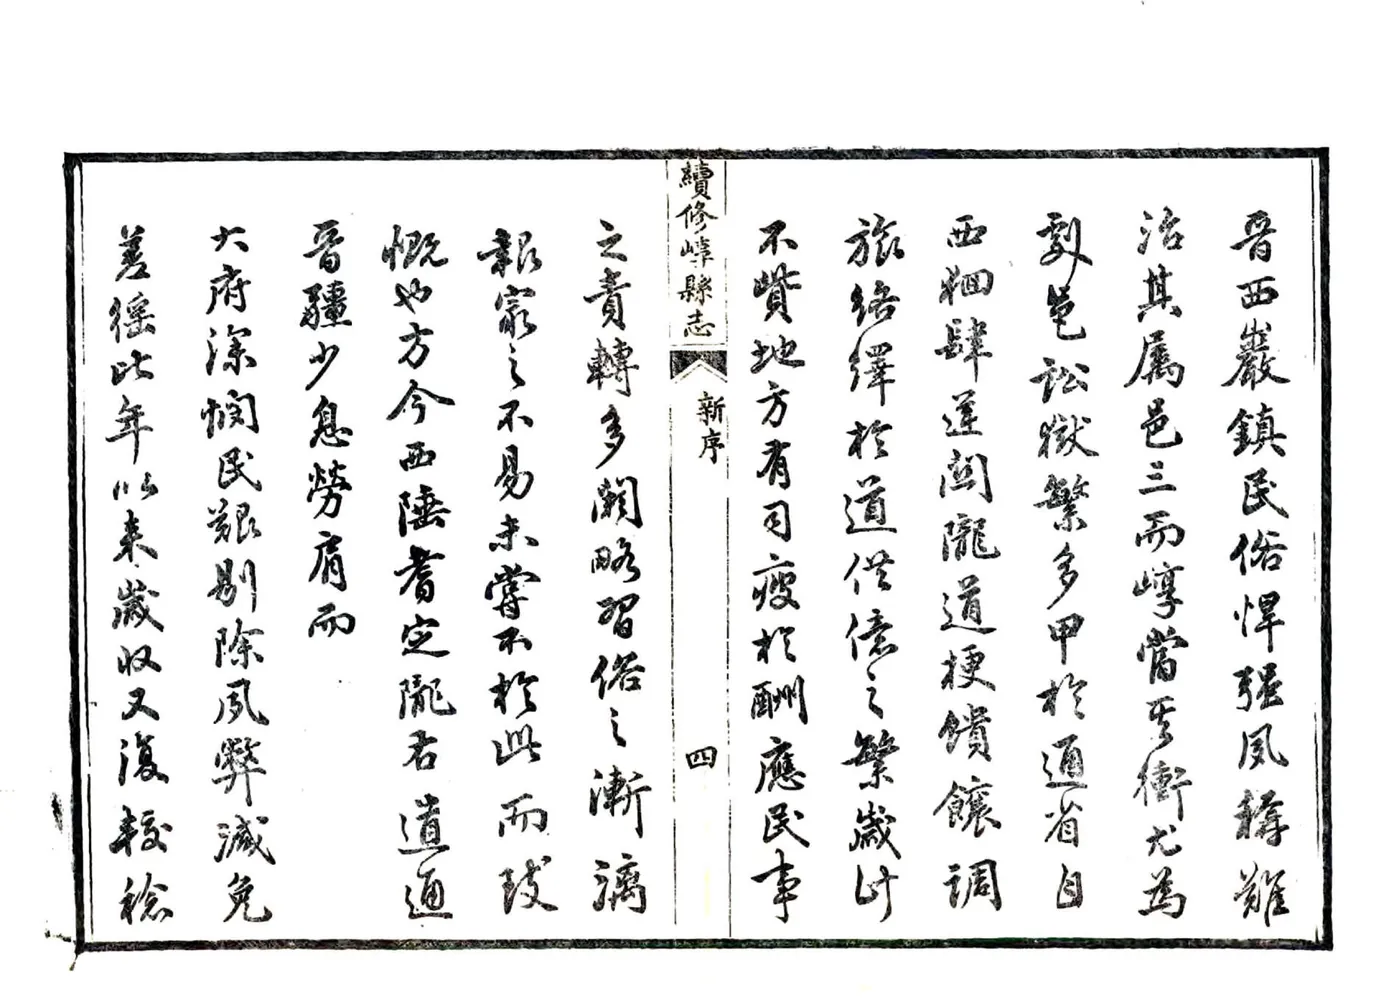 晉西巖鎮民俗悍強風稱難
治其屬邑三而崞當其衝尤為
劇邑訟獄繁多甲於通省自
西徊肆逆關隴道梗饋饟調
旅絡繹於道供億之繁歲計
不貲地方有司疲於酬應民事
續修崞縣志
新序
四
之責轉多闊略習俗之漸漓
報最之不易未嘗不於此而
慨也方今西陲耆定隴右道通
晉疆少息勞肩而
大府深憫民艱剔除夙弊減免
差徭比年以來歲收又復較稔